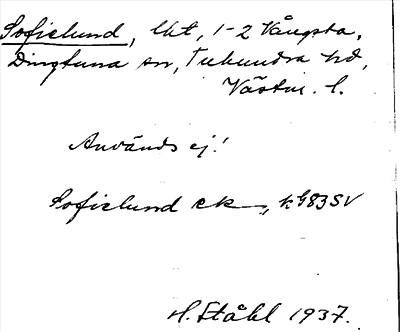 Sofielund, lht, 1-2 Vångsta,
Dingtuna sn, Tuhundra hd,
Västm. l.
Används ej!
Sofielund ek, k G83SV
H. Ståhl 1937.